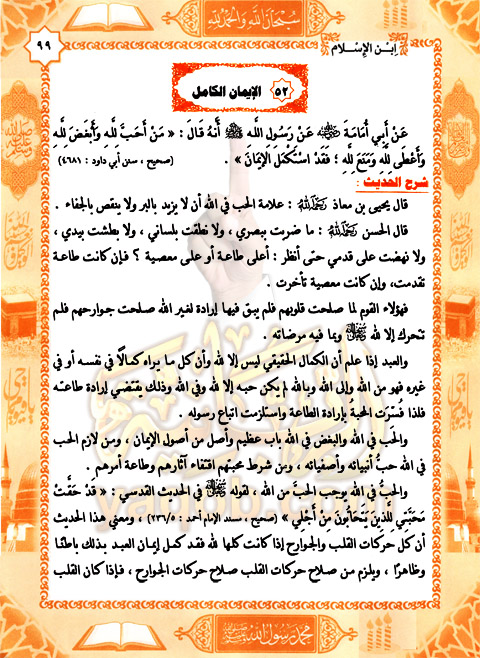 سبحان الله والحمد لله
٩٩
ابن الإسلام
٥٢ الإيمان الكامل
عَنْ أَبِي أُمَامَةَ ﷺ عَنْ رَسُولِ اللَّهِ ﷺ أَنَّهُ قَالَ : « مَنْ أَحَبَّ لِلَّهِ وَأَبْغَضَ لِلَّهِ
وَأَعْطَى لِلَّهِ وَمَنَعَ لِلَّهِ ؛ فَقَدْ اسْتَكْمَلَ الْإِيمَانَ » . (صحيح ، سنن أبي داود : ٤٦٨١)
شرح الحديث :
قال يحيى بن معاذ رحمه الله : علامة الحب في الله أن لا يزيد بالبر ولا ينقص بالجفاء .
قال الحسن رحمه الله : ما ضربت ببصري ، ولا نطقت بلساني ، ولا بطشت بيدي ،
ولا نهضت على قدمي حتى أنظر : أعلى طاعة أو على معصية ؟ فإن كانت طاعة
تقدمت، وإن كانت معصية تأخرت .
فهؤلاء القوم لما صلحت قلوبهم فلم يبق فيها إرادة لغير الله صلحت جوارحهم فلم
تتحرك إلا لله ﷻ وبما فيه مرضاته .
والعبد إذا علم أن الكمال الحقيقي ليس إلا لله وأن كل ما يراه كمالًا في نفسه أو في
غيره فهو من الله وإلى الله وبالله لم يكن حبه إلا لله وفي الله وذلك يقتضي إرادة طاعته
فلذا فُسِّرَت المحبةُ بإرادة الطاعة واستلزمت اتباع رسوله .
والحَب في الله والبغض في الله باب عظيم وأصل من أصول الإيمان ، ومن لازم الحب
في الله حبُّ أنبيائه وأصفيائه ، ومن شرط محبتهم اقتفاء آثارهم وطاعة أمرهم .
والحبُّ في الله يوجب المحبَّة من الله ، لقوله ﷺ في الحديث القدسي : « قَدْ حَقَّتْ
مَحَبَّتِي لِلَّذِينَ يَتَحَابُّونَ مِنْ أَجْلِي » (صحيح ، مسند الإمام أحمد : ٢٣٦/٥) ، ومعنى هذا الحديث
أن كل حركات القلب والجوارح إذا كانت كلها لله فقد كمل إيمان العبد بذلك باطنًا
وظاهرًا ، ويلزم من صلاح حركات القلب صلاح حركات الجوارح ، فإذا كان القلب
محمد رسول الله ﷺ